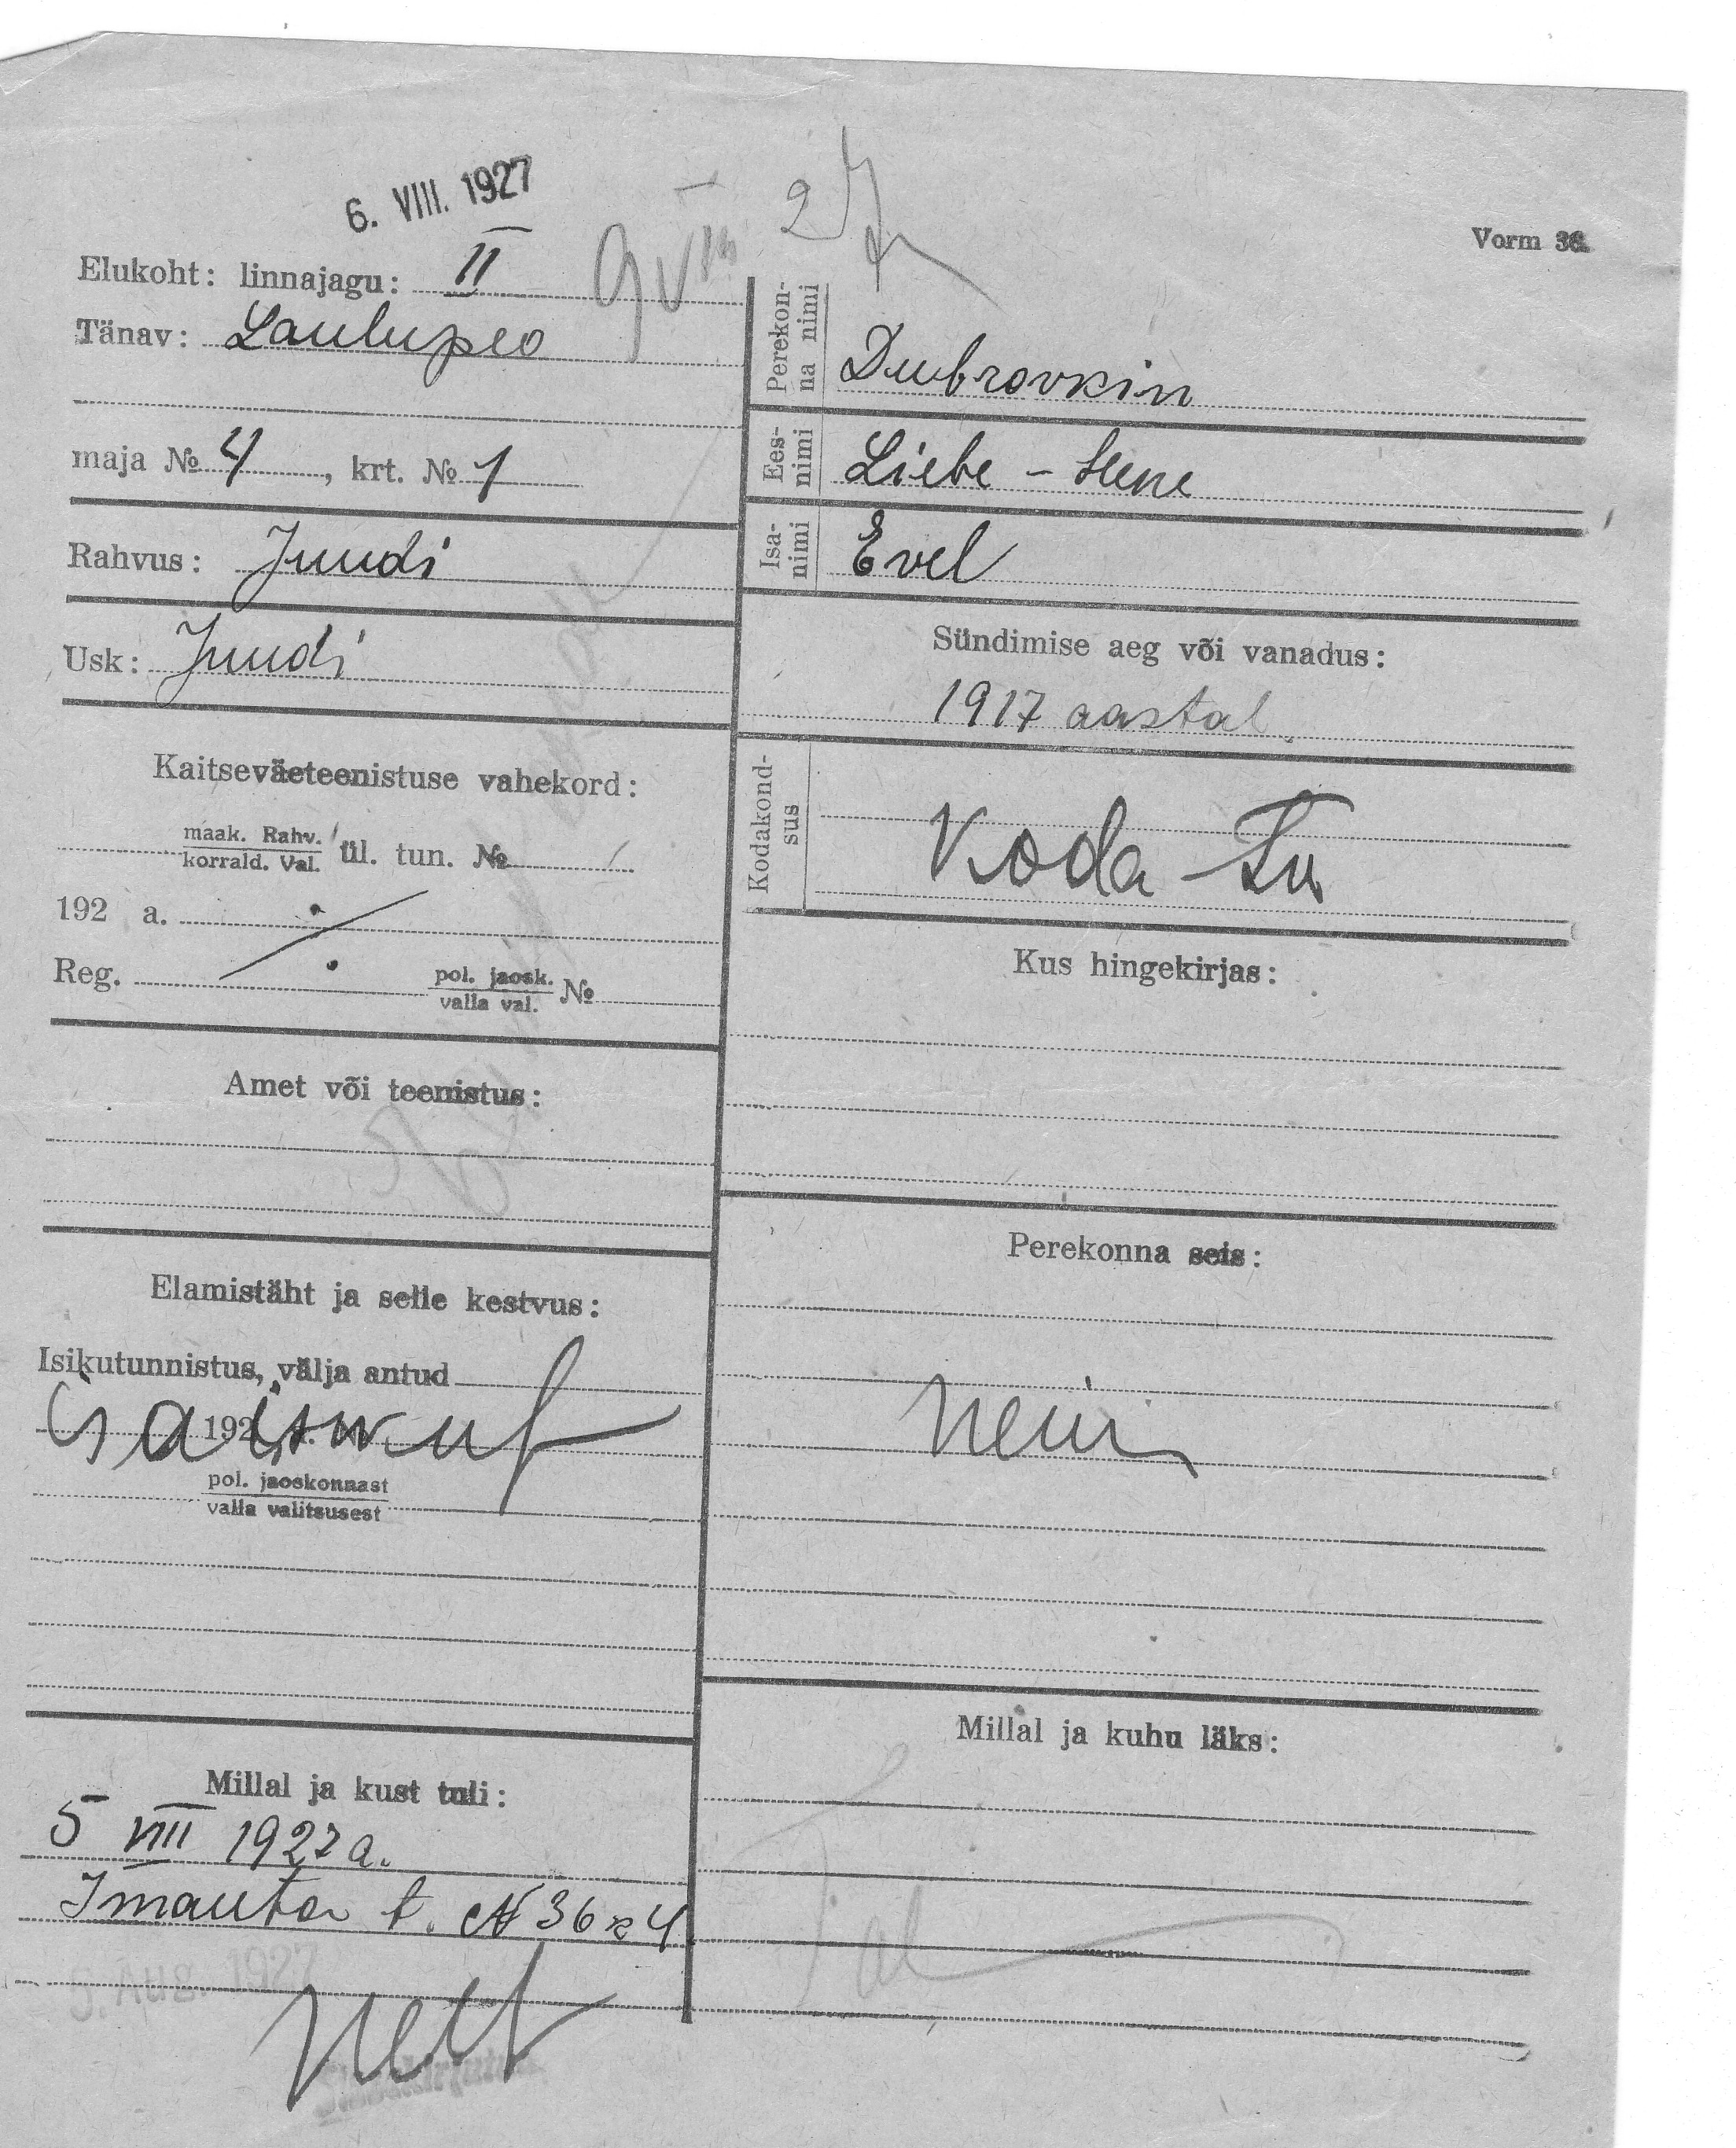 6. VIII. 1927
27
9 VIII
Vorm 36.
Elukoht: linnajagu: II
Tänav: Laulupeo
maja № 4, krt. № 1
Rahvus: Juudi
Usk: Juudi
Kaitseväeteenistuse vahekord:
maak. Rahv.
korrald. Val. ül. tun. №
192 a.
Reg. pol. jaosk.
valla val. №
Amet või teenistus:
Elamistäht ja selle kestvus:
Isikutunnistus, välja antud
192
pol. jaoskonnast
valla valitsusest
Millal ja kust tuli:
5 VIII 1927 a.
Imauta t. N 36 k 4
5. Aug. 1927
Perekonna nimi Dubrovkin
Eesnimi Liebe -
Isanimi Evel
Sündimise aeg või vanadus:
1917 aastal
Kodakondsus Koda
Kus hingekirjas:
Perekonna seis:
Millal ja kuhu läks: